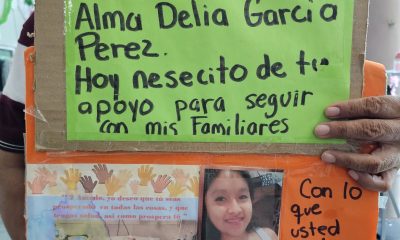 Alma Delia Garcia
Perez.
Hoy nesecito de tu
apoyo para seguir
con mis Familiares
Con lo
que
usted
"Amado, yo deseo que tu seas
prosperado en todas las cosas, y que
tengas salud, así como prospera tu